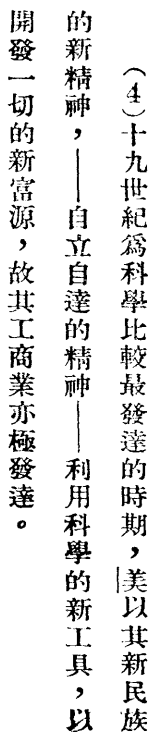 （4）十九世紀爲科學比較最發達的時期，美以其新民族
的新精神，——自立自達的精神——利用科學的新工具，以
開發一切的新富源，故其工商業亦極發達。